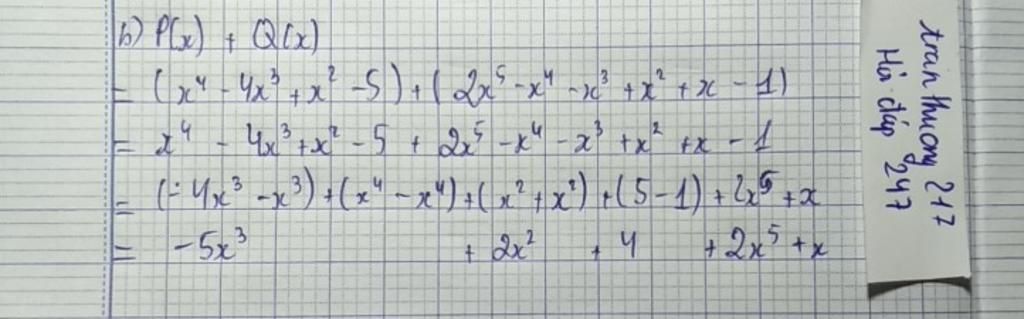 b) P(x) + Q(x)
= (x⁴ - 4x³ + x² - 5) + (2x⁵ - x⁴ - x³ + x² + x - 1)
= x⁴ - 4x³ + x² - 5 + 2x⁵ - x⁴ - x³ + x² + x - 1
= (- 4x³ - x³) + (x⁴ - x⁴) + (x² + x²) + (5 - 1) + 2x⁵ + x
= -5x³ + 2x² + 4 + 2x⁵ + x
tran thuong 217
Hỏi đáp 247